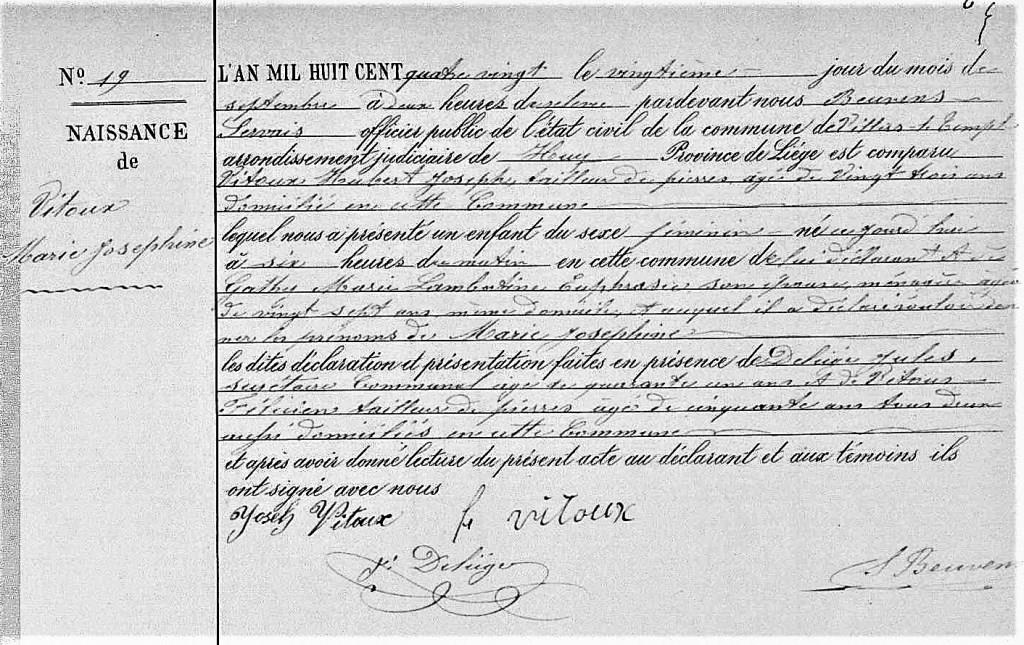 N° 19
NAISSANCE
de
Vitoux
Marie Josephine
L'AN MIL HUIT CENT quatre vingt le vingtième jour du mois de
septembre à deux heures de relevée pardevant nous Beuvens
Servais officier public de l'état civil de la commune de Villers-le-Templ
arrondissement judiciaire de Huy Province de Liége est comparu
Vitoux Hubert Joseph, tailleur de pierres, agé de vingt trois ans
domicilié en cette Commune
lequel nous a présenté un enfant du sexe féminin né ce jourd'hui
à six heures du matin en cette commune de lui déclarant et de
Gathy Marie Lambertine Euphrasie son épouse, ménagère, agée
de vingt sept ans, même domicile, et auquel il a déclaré vouloir don
ner les prénoms de Marie Josephine
les dites déclaration et présentation faites en présence de Deliége Jules,
secrétaire Communal agé de quarante un ans et de Vitoux
Félicien tailleur de pierres âgé de cinquante ans tous deux
aussi domiciliés en cette Commune
et après avoir donné lecture du présent acte au déclarant et aux témoins ils
ont signé avec nous
Joseh Vitoux f vitoux
J. Deliége
S Beuven